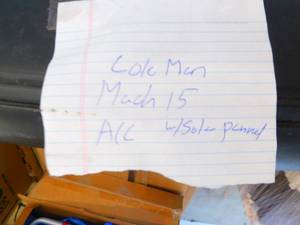 Cole Man
Mach 15
A/C w/Solar pannel